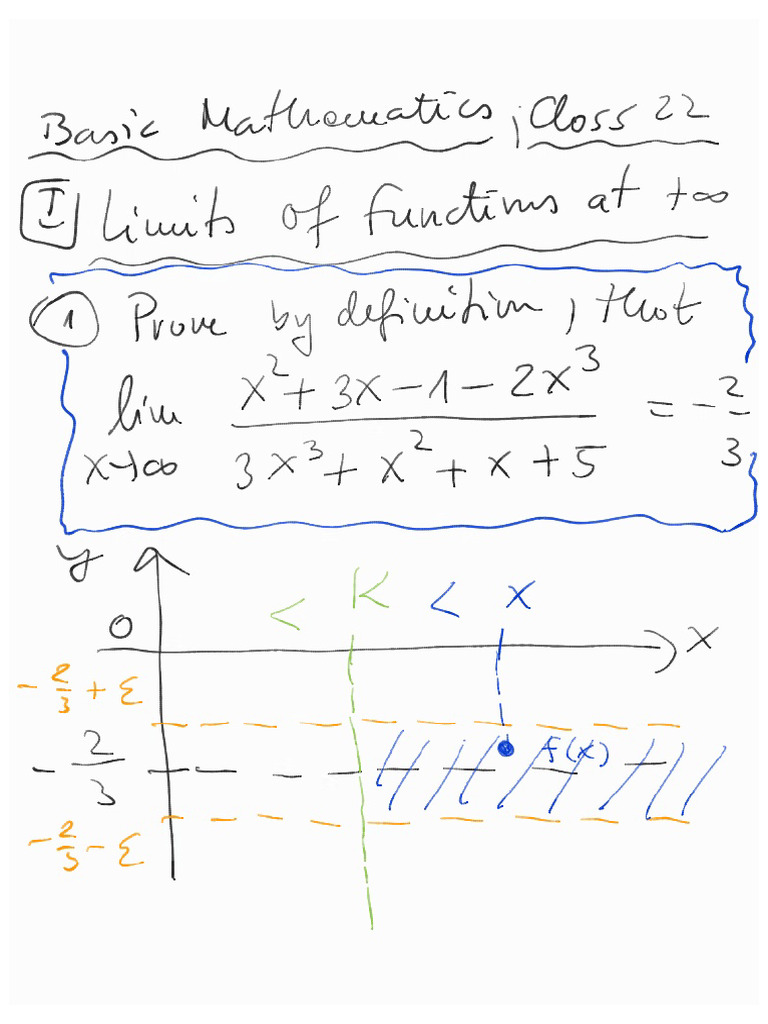 Basic Mathematics, Class 22
I Limits of functions at +∞
1 Prove by definition, that
lim x→∞ (x² + 3x - 1 - 2x³) / (3x³ + x² + x + 5) = -2/3
y
< K < x
0
x
-2/3 + ε
-2/3
f(x)
-2/3 - ε